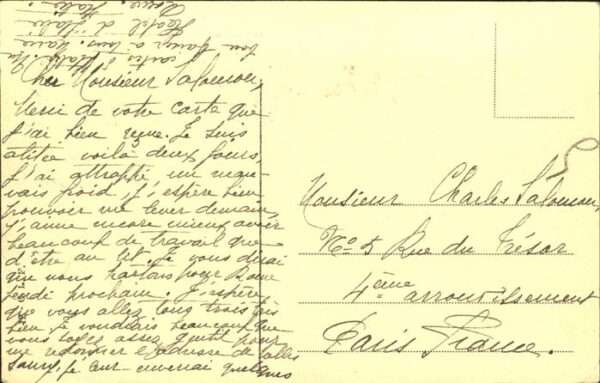 Cher Monsieur Salomon,
Merci de votre carte que
j'ai bien reçue. Je suis
alitée voilà deux jours,
j'ai attrapé un mau-
vais froid, j'espère bien
pouvoir me lever demain,
j'aime encore mieux avoir
beaucoup de travail que
d'être au lit. Je vous dirai
que nous partons pour Rome
jeudi prochain. J'espère
que vous allez tous trois très
bien je voudrais beaucoup que
vous soyez assez gentil pour
me redonner l'adresse de
je leur enverrai quelques
Hotel d'Italie
Rome. Italie
Monsieur Charles Salomon,
No 5 Rue du Trésor
4ème arrondissement
Paris France.